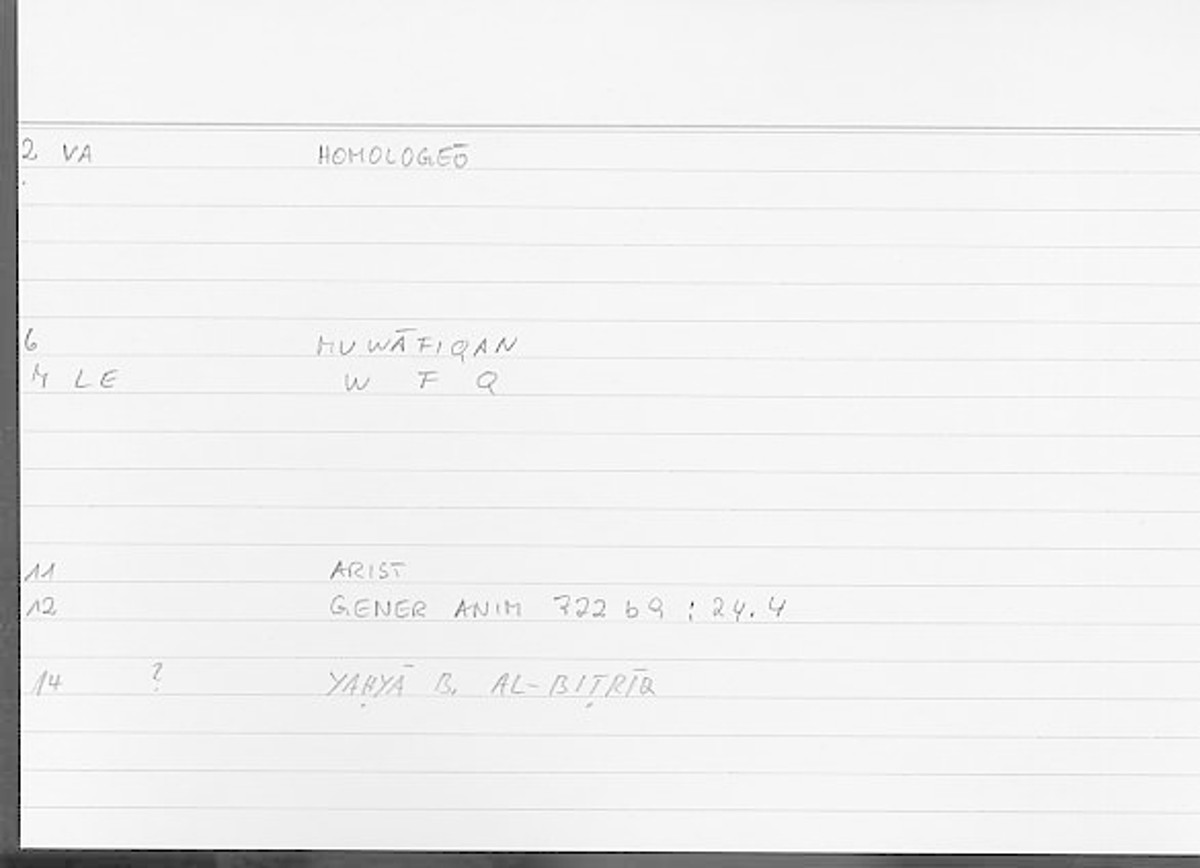 2 VA HOMOLOGEŌ
6 MUWĀFIQAN
M LE W F Q
11 ARIST
12 GENER ANIM 722 b 9 : 24.4
14 ? YAḤYĀ B. AL-BIṬRĪQ